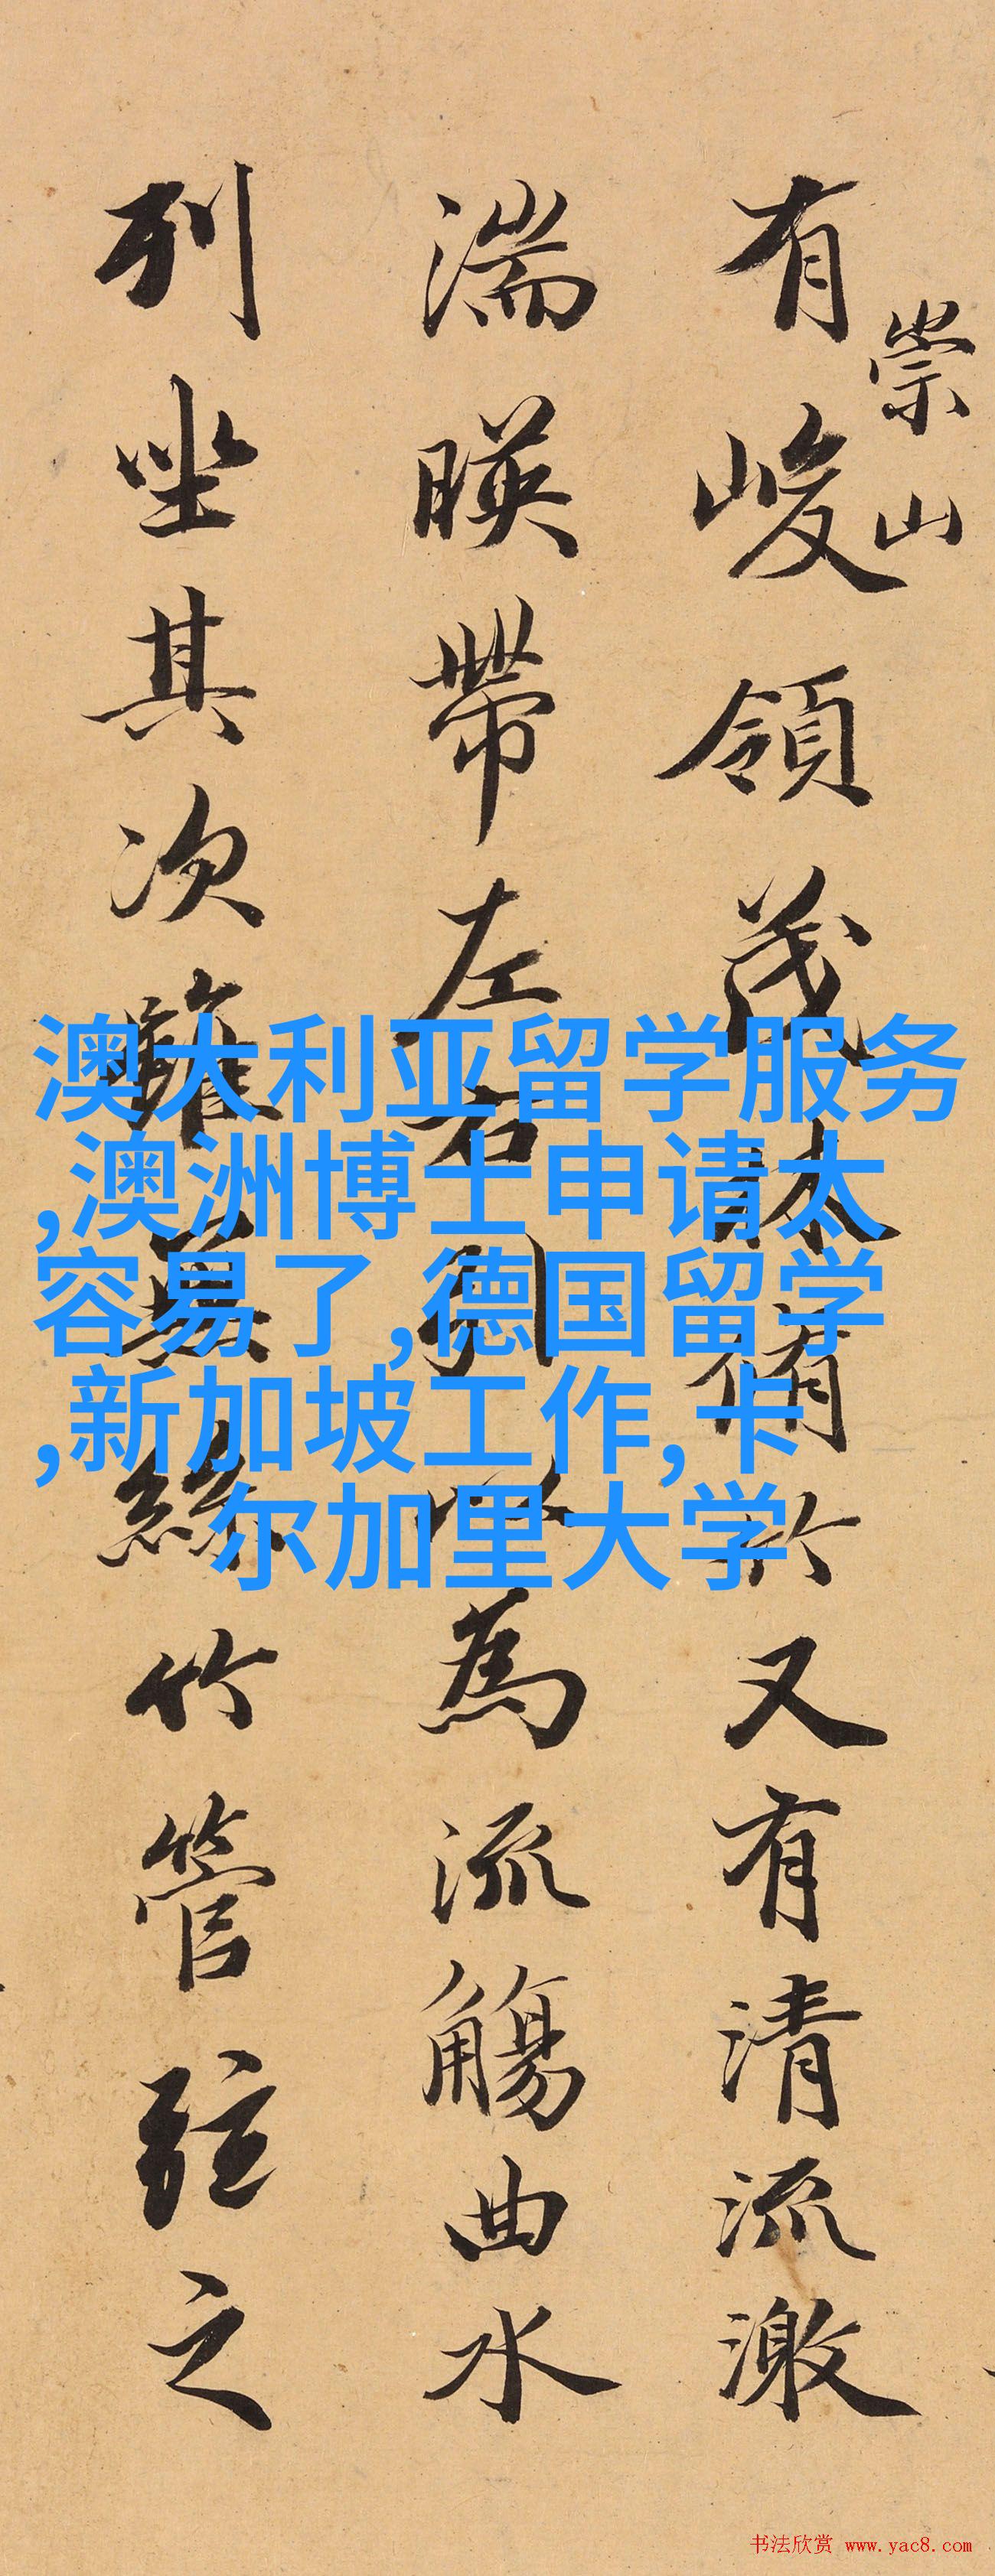 崇山
有峻領茂林脩竹又有清流激
湍暎帶左右引以為流觴曲水
列坐其次雖無絲竹管弦之
澳大利亚留学服务
,澳洲博士申请太
容易了,德国留学
,新加坡工作,卡
尔加里大学
书法欣赏 www.yac8.com